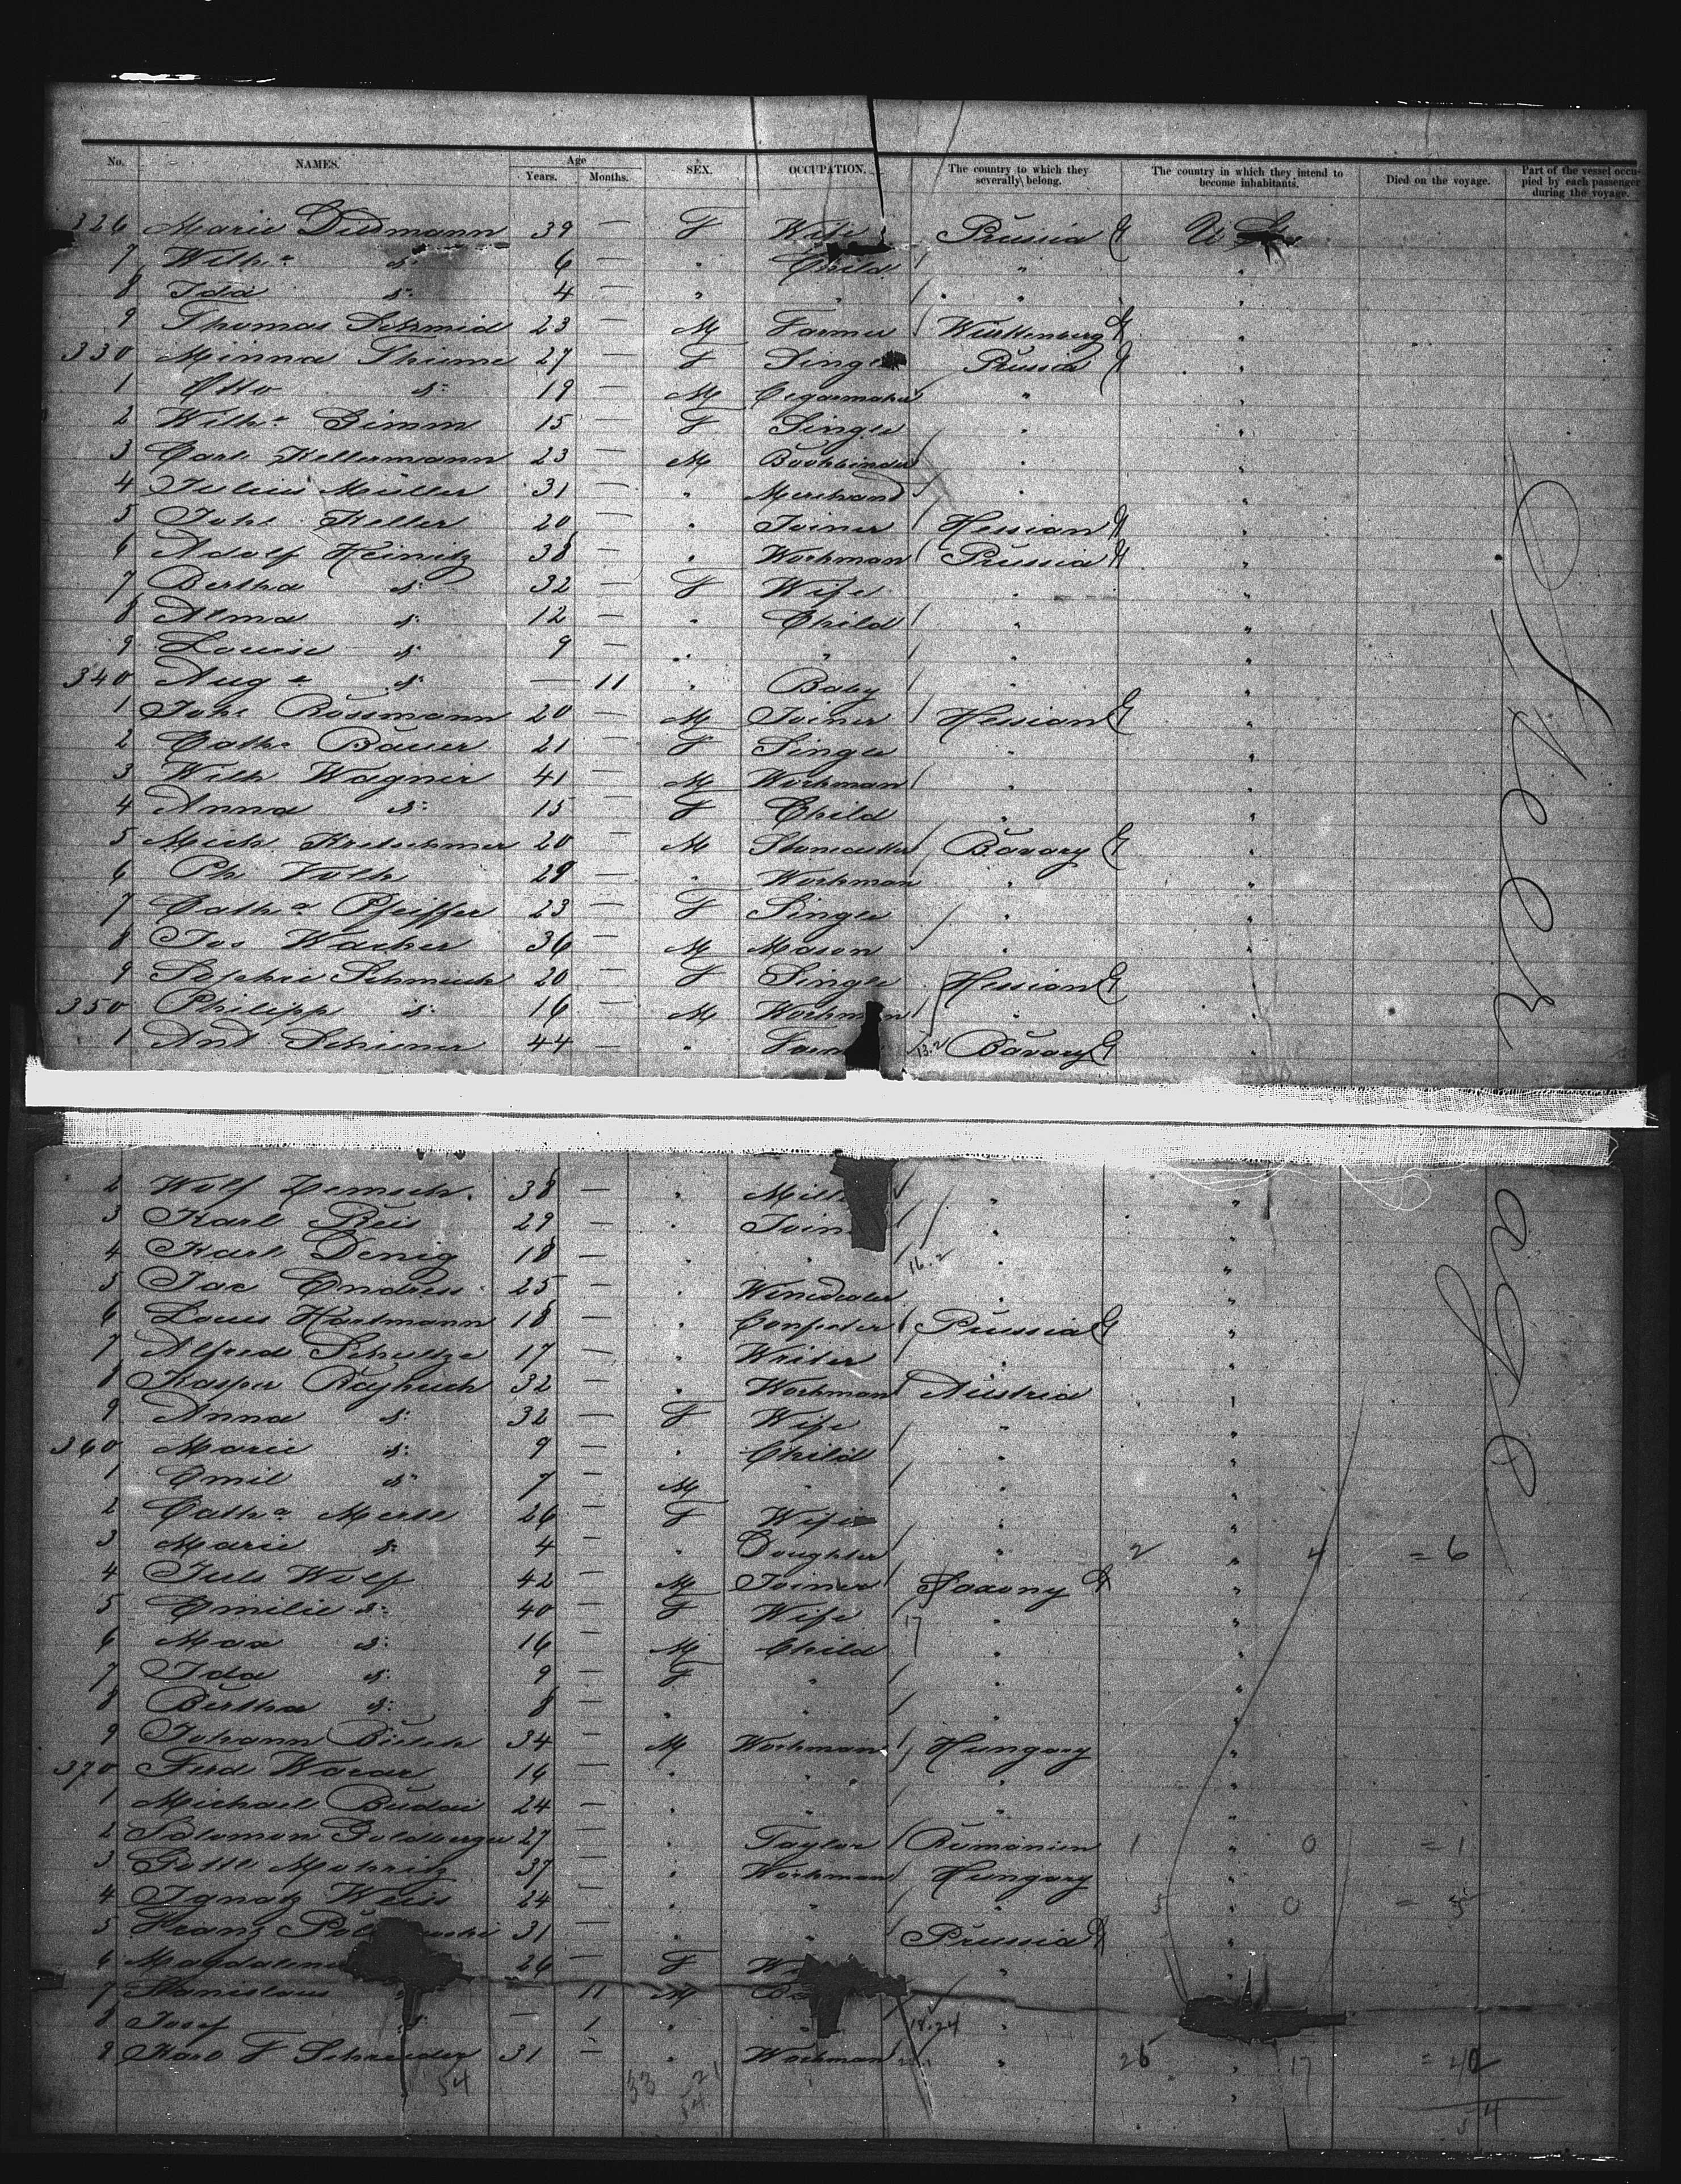 No. NAMES. Age Years. Months. SEX. OCCUPATION. The country to which they severally belong. The country in which they intend to become inhabitants. Died on the voyage. Part of the vessel occupied by each passenger during the voyage.
326 Marie Dudmann 39 — F Wife Prussia G U S
7 Wilh.a d: 6 — " Child "  "
8 Ida d: 4 — " " " "
9 Thomas Schmid 23 — M Farmer Württenberg G "
330 Minna Thieme 27 — F Single Prussia G "
1 Otto d: 19 — M Cegarmaker " "
2 Wilh.a Simm 15 — F Single " "
3 Carl Kellermann 23 — M Buchbinder " "
4 Julius Müller 31 — " Merchand " "
5 Joh. Keller 20 — " Joiner Hessian G "
6 Adolf Heinitz 38 — " Workman Prussia G "
7 Bertha d: 32 — F Wife " "
8 Alma d: 12 — " Child " "
9 Louise d: 9 — " " " "
340 Aug.a d: — 11 " Baby " "
1 Joh. Rossmann 20 — M Joiner Hessian G "
2 Cath.a Bauer 21 — F Single " "
3 Wilh Wagner 41 — M Workman " "
4 Anna d: 15 — F Child " "
5 Mich Kretschmer 20 — M Stonecutter Bavary G "
6 Ph Voth 29 — " Workman " "
7 Cath.a Pfeiffer 23 — F Single " "
8 Jos Wacker 36 — M Mason " "
9 Sophie Schmich 20 — F Single Hessian G "
350 Philipp d: 16 — M Workman " "
1 Ant Schiener 44 — " Farm 13.2 Bavary G "
2 Wolf 38 — " Mill " "
3 Karl Reis 29 — " Join " "
4 Karl Denig 18 — " " 16.2 " "
5 Jac Endress 25 — " Winedealer " "
6 Louis Hartmann 18 — " Confecter Prussia G "
7 Alfred Schultze 17 — " Writer " "
8 Kasper 32 — " Workman Austria "
9 Anna d: 32 — F Wife " "
360 Marie d: 9 — " Child " "
1 Emil d: 7 — M " " "
2 Cath.a Merll 26 — F Wife " "
3 Marie d: 4 — " Doughter " 2 " 4 = 6
4 Juls Wolf 42 — M Joiner Saxony G "
5 Emilie d: 40 — F Wife 17 " "
6 Max d: 16 — M Child " "
7 Ida d: 9 — F " " "
8 Bertha d: 8 — " " " "
9 Johann 34 — M Workman Hungary "
370 Ferd 16 — " " " "
1 Michael Budai 24 — " " " "
2 Salomon Goldberger 27 — " Taylor Rumänien 1 " 0 = 1
3 Gottl Mohritz 37 — " Workman Hungary "
4 Ignatz Weiss 24 — " " " 5 " 0 = 5
5 Franz 31 — " " Prussia G "
6 Magdalena 26 — F W " "
7 Stanislaus — 11 M B "
8 Josef d: — 1 " " 18.24 "
9 Karl F Schneider 31 — " Workman " 25 " 17 = 42
54 33 21 54 54
Steerage